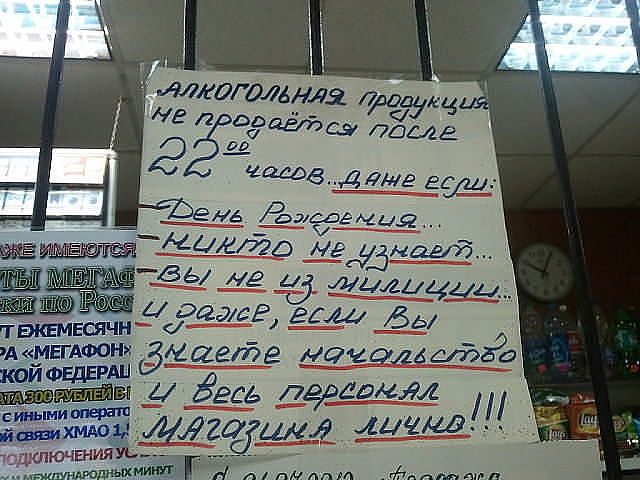 АЛКОГОЛЬНАЯ продукция
не продаётся после
22⁰⁰ часов... даже если:
– День Рождения...
– никто не узнает...
– вы не из милиции...
и даже, если Вы
знаете начальство
и весь персонал
магазина лично!!!
ЖЕ ИМЕЮТСЯ
ТЫ МЕГАФ
ки по Росс
ЕЖЕМЕСЯЧН
РА «МЕГАФОН»
СКОЙ ФЕДЕРАЦ
300 РУБЛЕЙ В
с иными операто
ой связи ХМАО 1,5
ПОДКЛЮЧЕНИЯ УСЛ
И МЕЖДУНАРОДНЫХ МИНУТ
Lay's